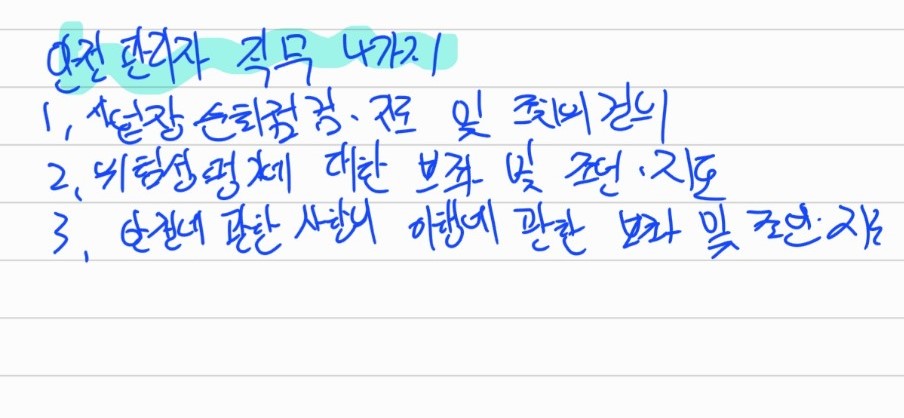 안전관리자 직무 4가지
1, 사업장 순회점검·지도 및 조치의 건의
2, 위험성평가에 대한 보좌 및 조언·지도
3, 안전에 관한 사항의 이행에 관한 보좌 및 조언·지도